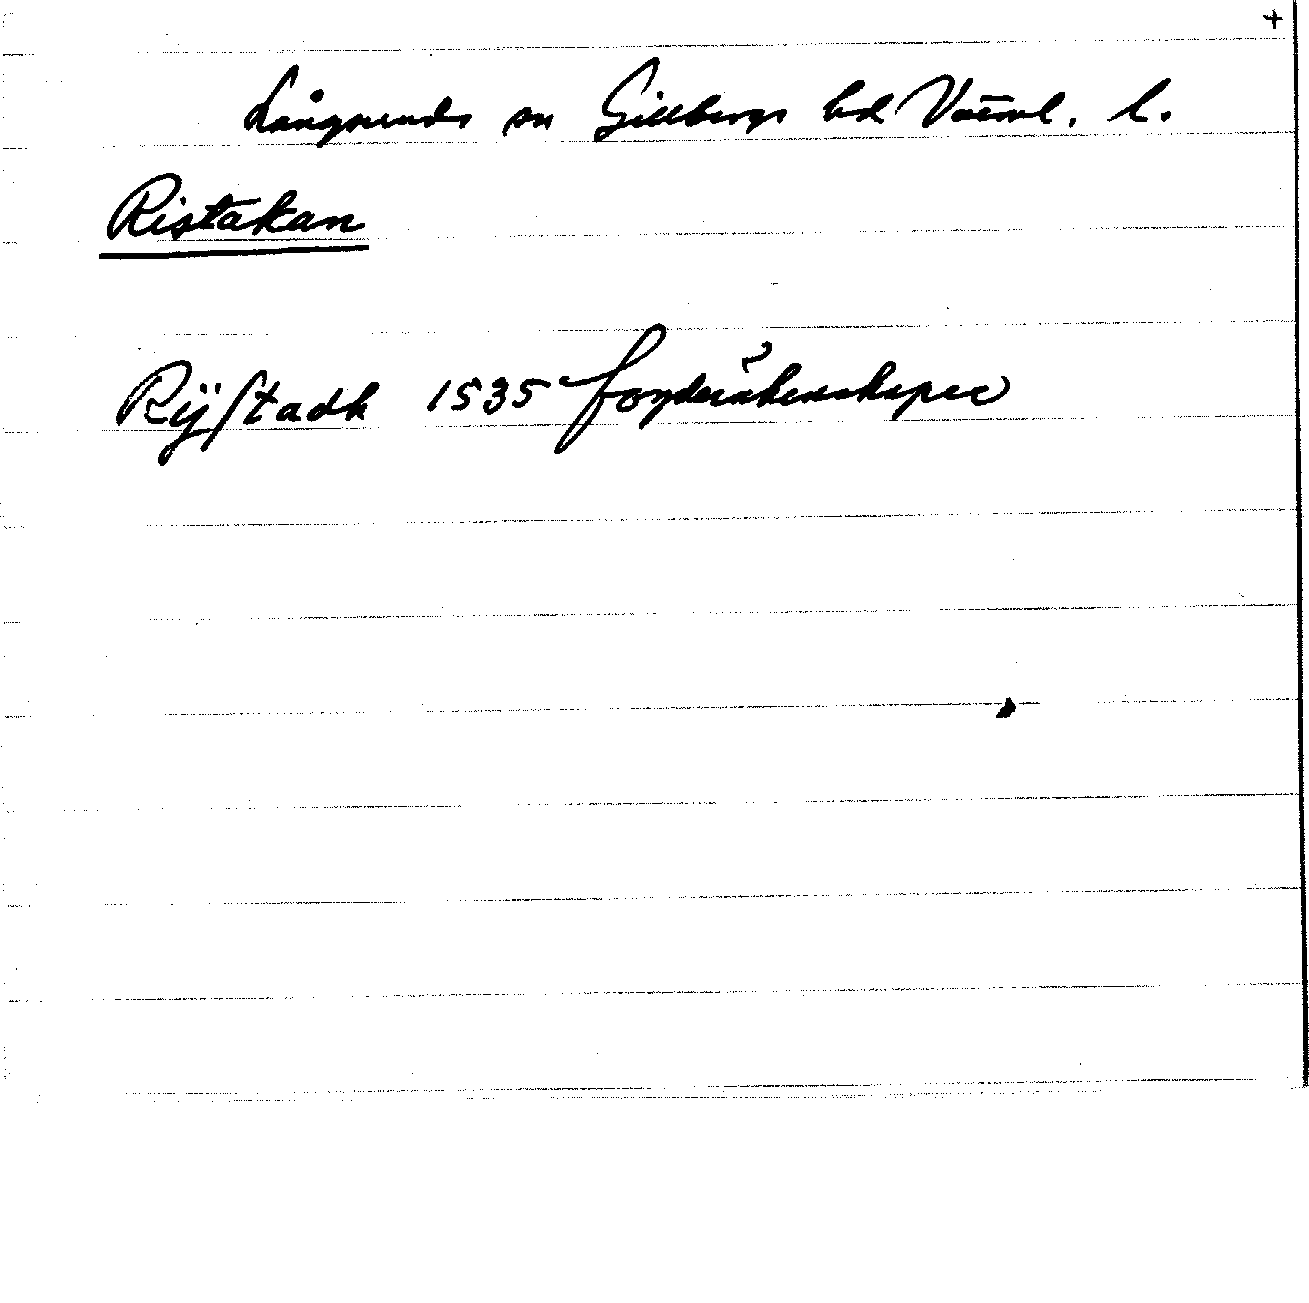 +
Långseruds sn Gillbergs hd Värml. l.
Ristakan
Rÿstadh 1535 fogderäkenskaper